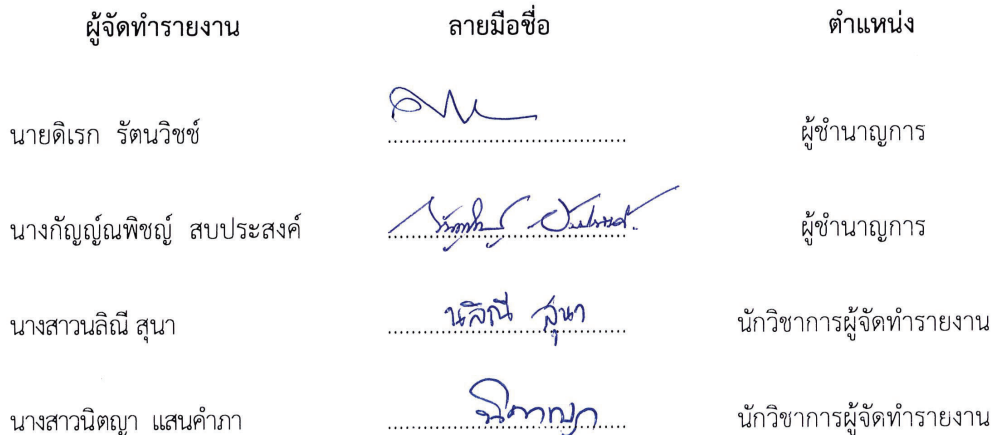 ผู้จัดทำรายงาน ลายมือชื่อ ตำแหน่ง
นายดิเรก รัตนวิชช์ ผู้ชำนาญการ
นางกัญญ์ณพิชญ์ สบประสงค์ ผู้ชำนาญการ
นางสาวนลิณี สุนา นลิณี สุนา นักวิชาการผู้จัดทำรายงาน
นางสาวนิตญา แสนคำภา นิตญา นักวิชาการผู้จัดทำรายงาน